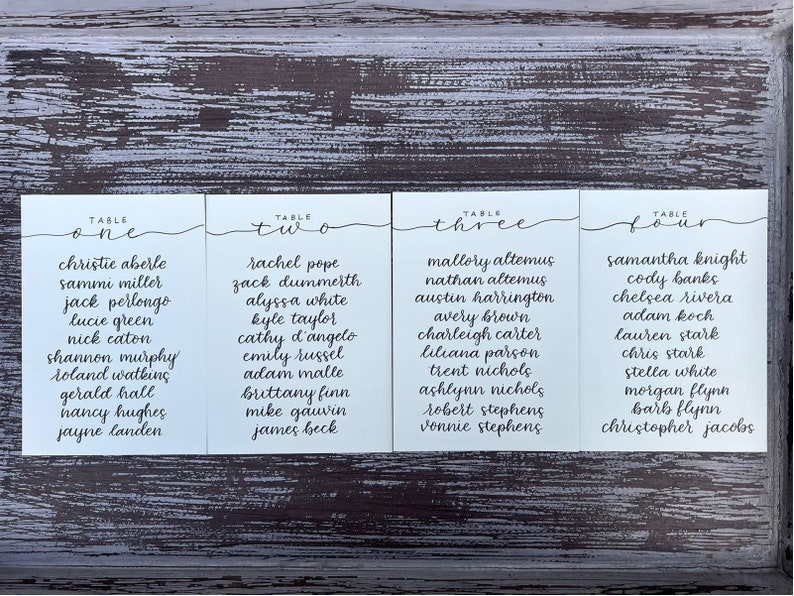 TABLE
one
christie aberle
sammi miller
jack perlongo
lucie green
nick eaton
shannon murphy
roland watkins
gerald hall
nancy hughes
jayne landen
TABLE
two
rachel pope
zack dummerth
alyssa white
kyle taylor
cathy d'angelo
emily russel
adam malle
brittany finn
mike gauvin
james beck
TABLE
three
mallory altemus
nathan altemus
austin harrington
avery brown
charleigh carter
liliana parson
trent nichols
ashlynn nichols
robert stephens
vonnie stephens
TABLE
four
samantha knight
cody banks
chelsea rivera
adam koch
lauren stark
chris stark
stella white
morgan flynn
barb flynn
christopher jacobs